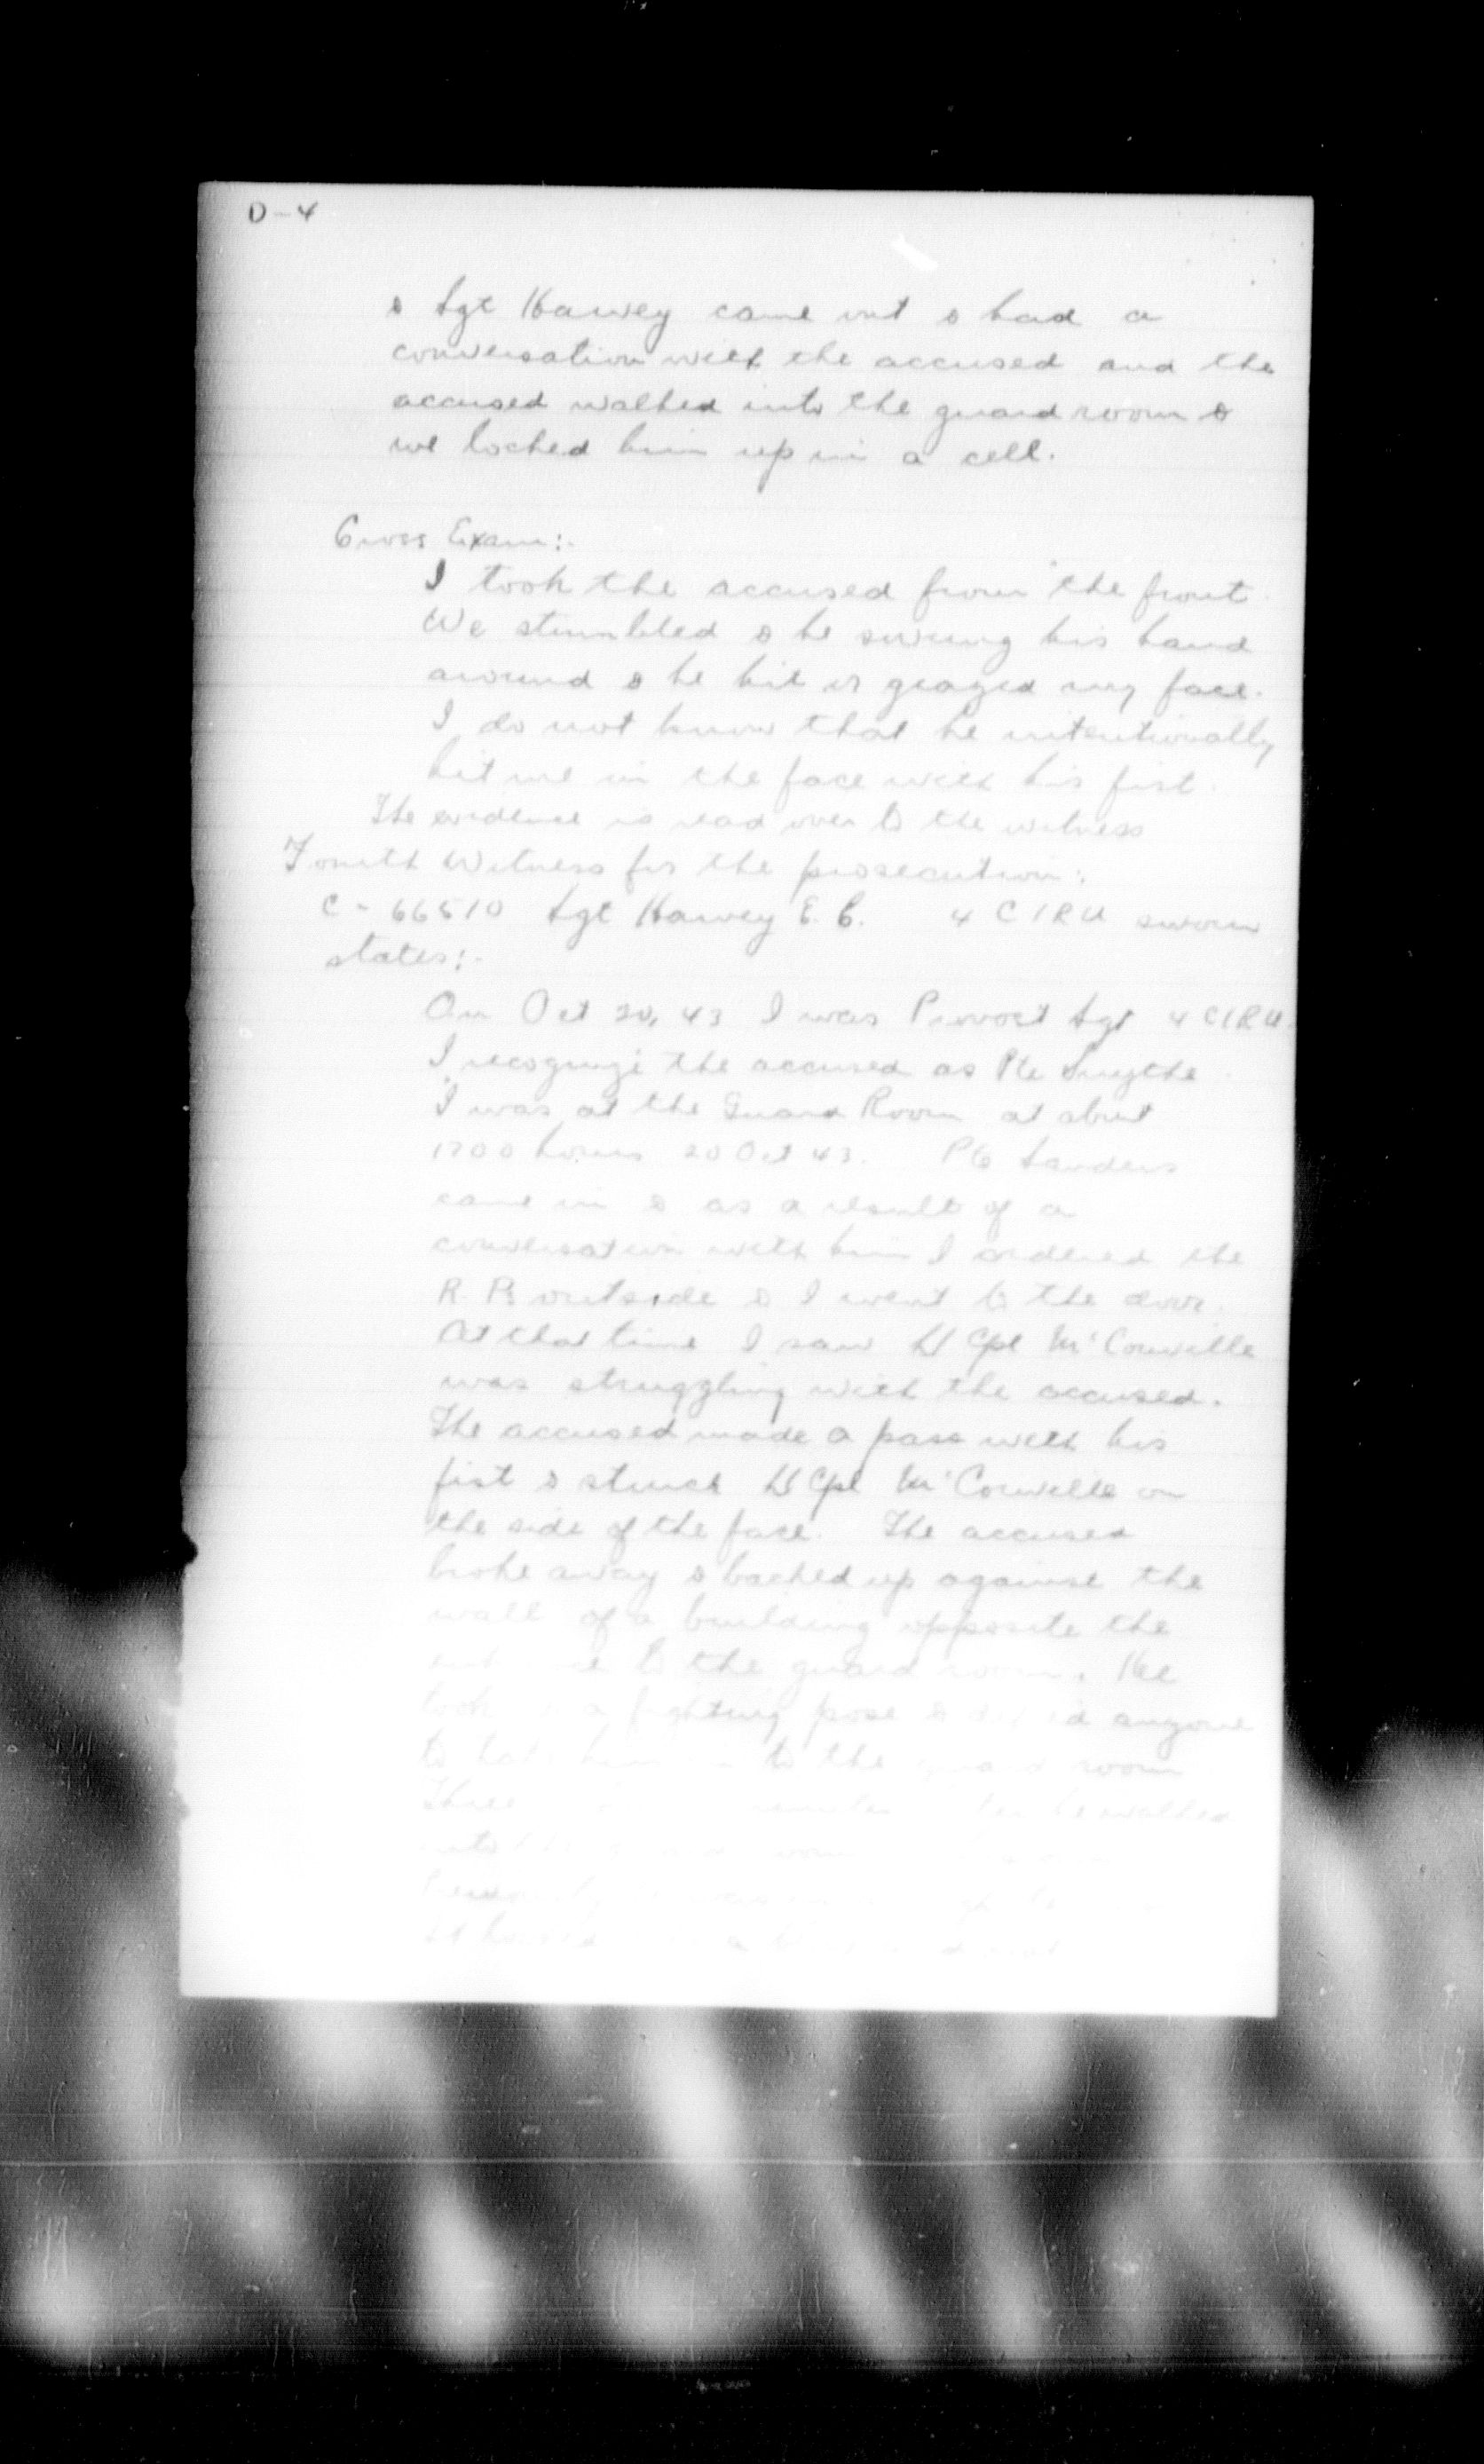 D-4
& Sgt Harvey came out & had a
conversation with the accused and the
accused walked into the guard room &
we locked him up in a cell.
Cross Exam:-
I took the accused from the front.
We stumbled & he swung his hand
around & he hit or grazed my face.
I do not know that he intentionally
hit me in the face with his fist.
The evidence is read over to the witness
Fourth Witness for the prosecution:
C-66510 Sgt Harvey E. C. 4 CIRU sworn
states:-
On Oct 20, 43 I was Provost Sgt 4 CIRU.
I recognize the accused as Pte Smythe.
I was at the Guard Room at about
1700 hours 20 Oct 43. Pte Sanders
came in & as a result of a
conversation with him I ordered the
R.Ps outside & I went to the door.
At that time I saw L/Cpl McConville
was struggling with the accused.
The accused made a pass with his
fist & struck L/Cpl McConville on
the side of the face. The accused
broke away & backed up against the
wall of a building opposite the
to the guard room. He
took a fighting pose & anyone
to him to the guard room
Three he walked